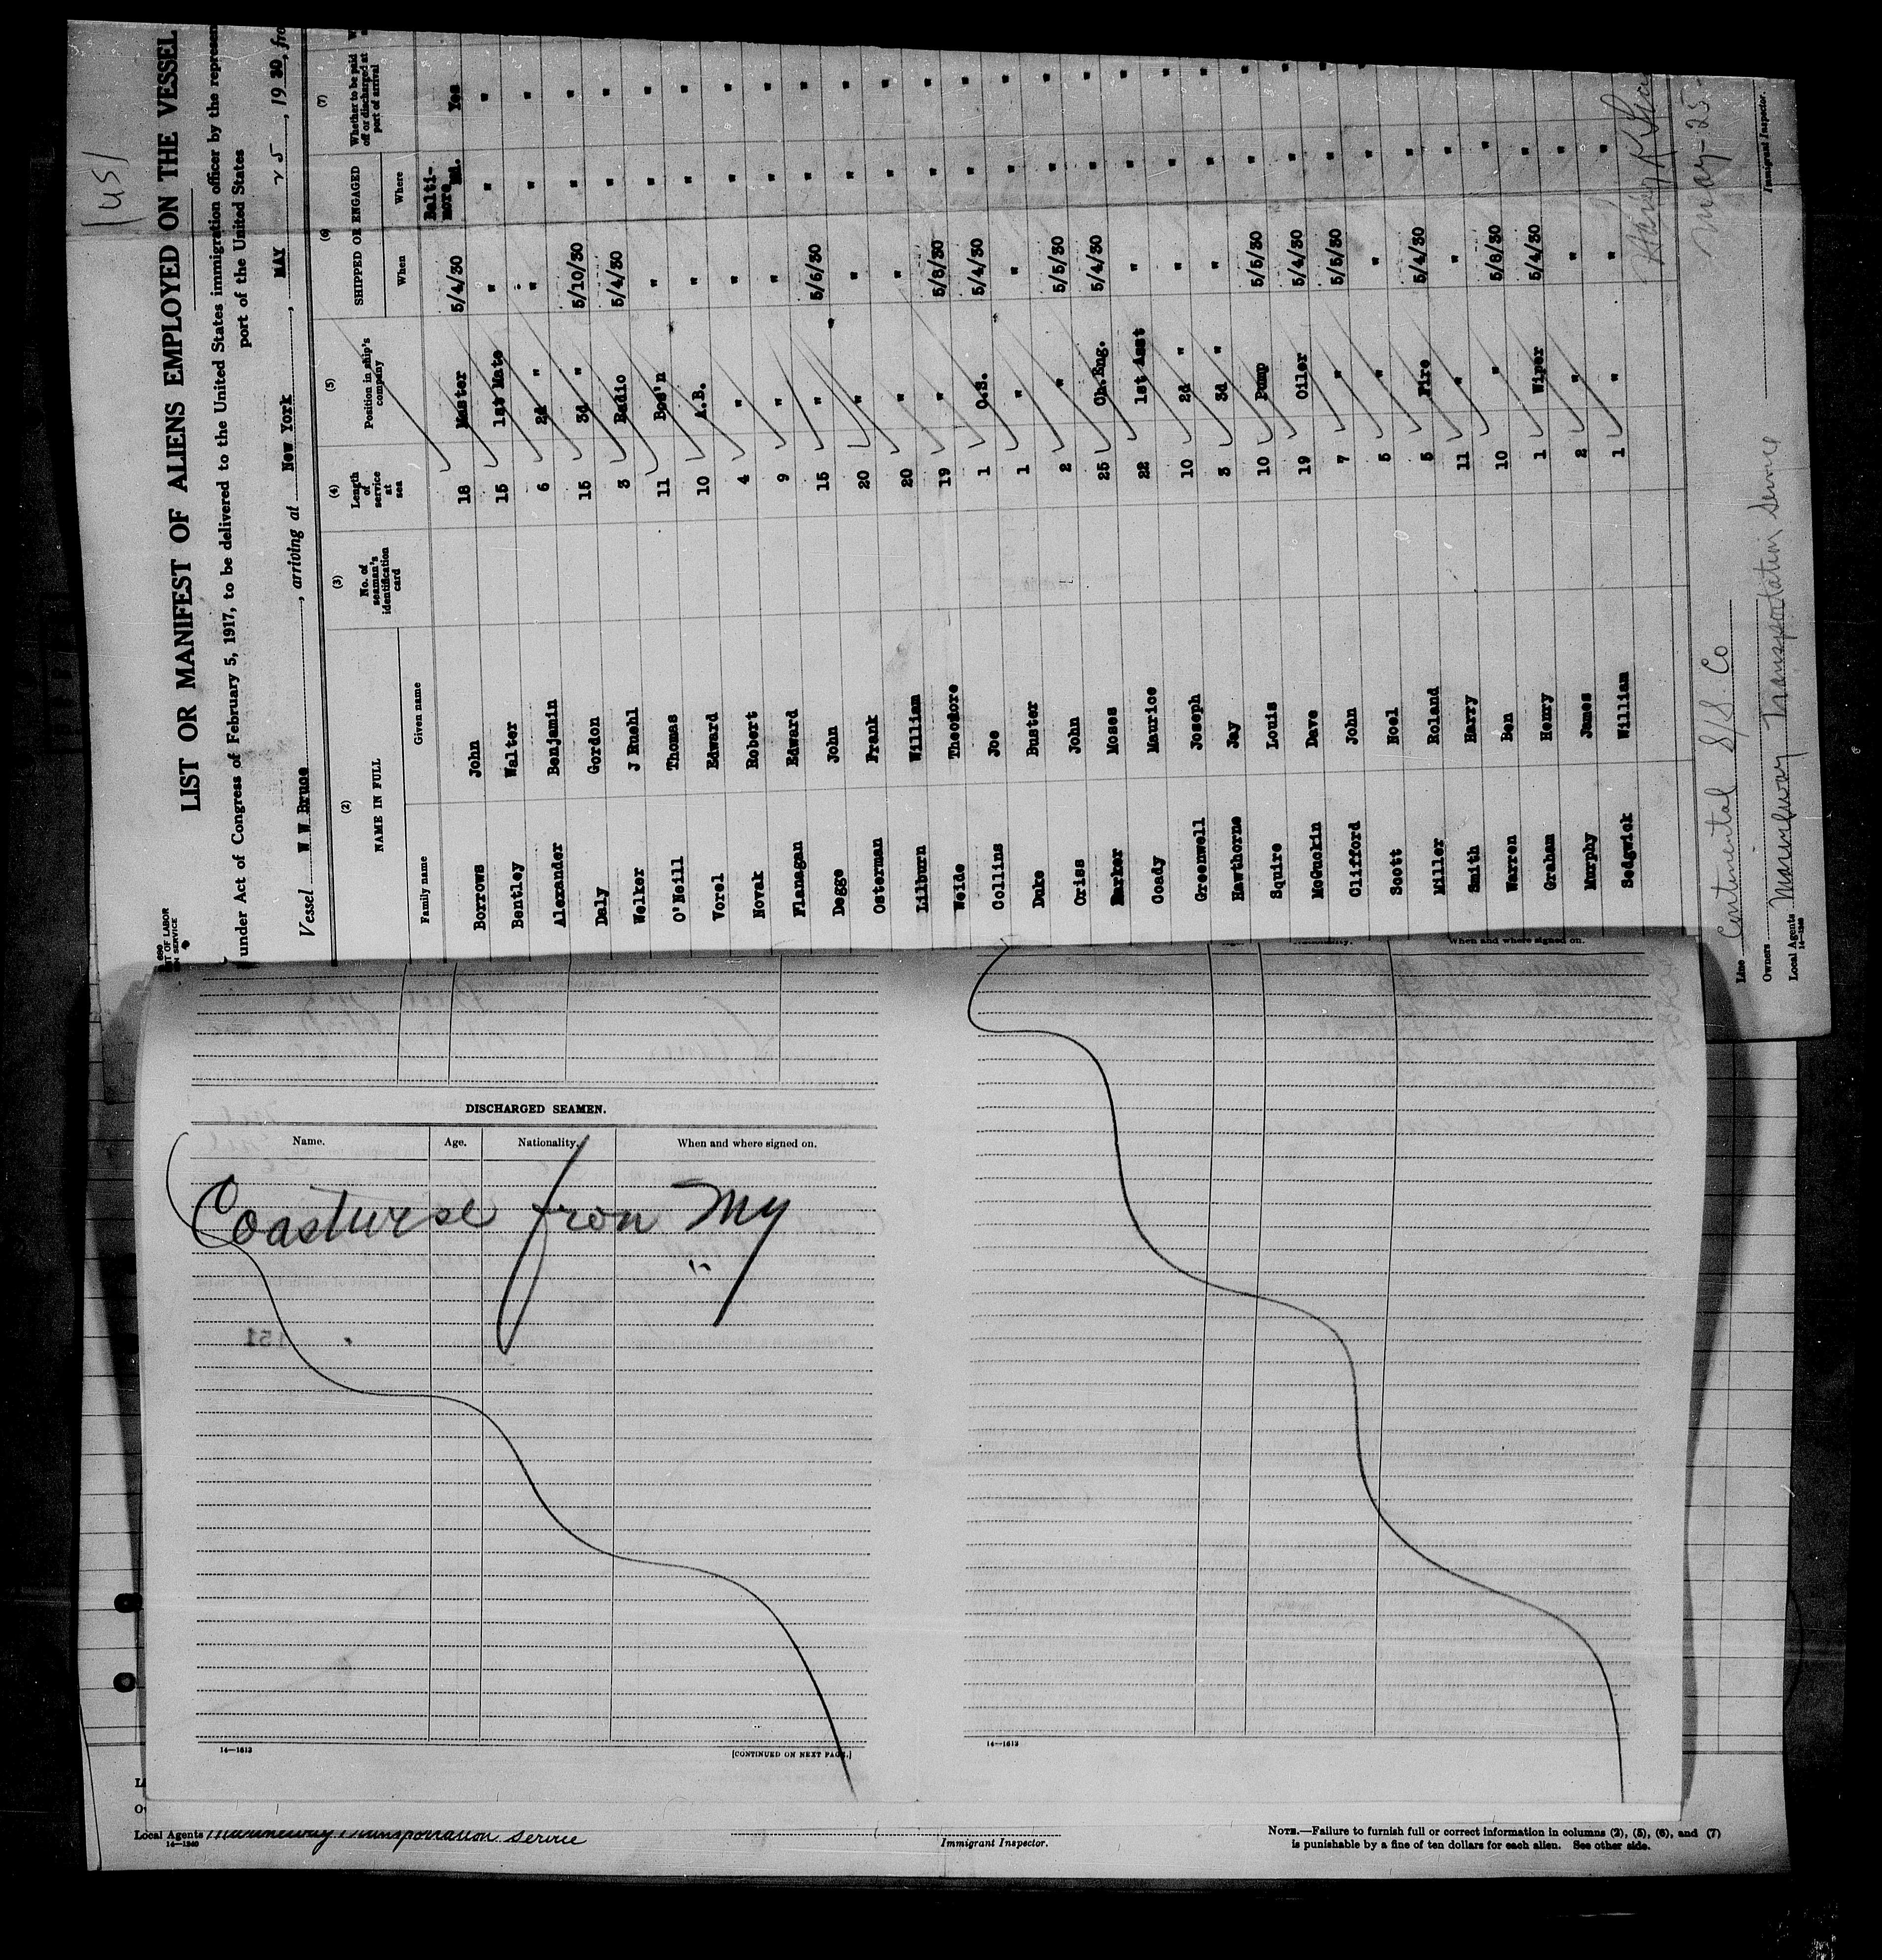 [us]
LIST OR MANIFEST OF ALIENS EMPLOYED ON THE VESSEL
under Act of Congress of February 5, 1917, to be delivered to the United States immigration officer by the represen
port of the United States
Vessel W W Brune, arriving at New York, MAY 25, 1930, fro
(2) (3) (4) (5) (6) (7)
NAME IN FULL No. of seaman's identification card Length of service at sea Position in ship's company SHIPPED OR ENGAGED Whether to be paid off or discharged at port of arrival
Family name Given name When Where
Borrows John 18 Master 5/4/30 Baltimore Md. Yes
Bentley Walter 15 1st Mate " " "
Alexander Benjamin 6 2d " " " "
Daly Gordon 15 3d " 5/10/30 " "
Welker J Ruehl 3 Radio 5/4/30 " "
O'Neill Thomas 11 Bos'n " " "
Vorel Edward 10 A.B. " " "
Novak Robert 4 " " " "
Flanagan Edward 9 " " " "
Degge John 15 " 5/6/30 " "
Osterman Frank 20 " " " "
Lilburn William 20 " " " "
Weide Theodore 19 " 5/8/30 " "
Collins Joe 1 O.S. 5/4/30 " "
Duke Buster 1 " " " "
Criss John 2 " 5/5/30 " "
Barker Moses 25 Ch.Eng. 5/4/30 " "
Coady Maurice 22 1st Asst " " "
Greenwell Joseph 10 2d " " " "
Hawthorne Jay 3 3d " " " "
Squire Louis 10 Pump 5/5/30 " "
McGuckin Dave 19 Oiler 5/4/30 " "
Clifford John 7 " 5/5/30 " "
Scott Noel 5 " " " "
Miller Roland 5 Fire 5/4/30 "
Smith Harry 11 " " "
Warren Ben 10 " 5/8/30 "
Graham Henry 1 Wiper 5/4/30 "
Murphy James 2 " " "
Sedgwick William 1 " " "
May-25-
Line Continental S/S Co
Owners
Local Agents Marineway Transportation Service
14—1240
Immigrant Inspector.
When and where signed on.
DISCHARGED SEAMEN.
Name. Age. Nationality. When and where signed on.
Coastwise from NY
151
14—1613
[CONTINUED ON NEXT PAGE.]
14—1613
Local Agents Marineway Transportation Service
14—1240
Immigrant Inspector.
NOTE.—Failure to furnish full or correct information in columns (2), (5), (6), and (7)
is punishable by a fine of ten dollars for each alien. See other side.